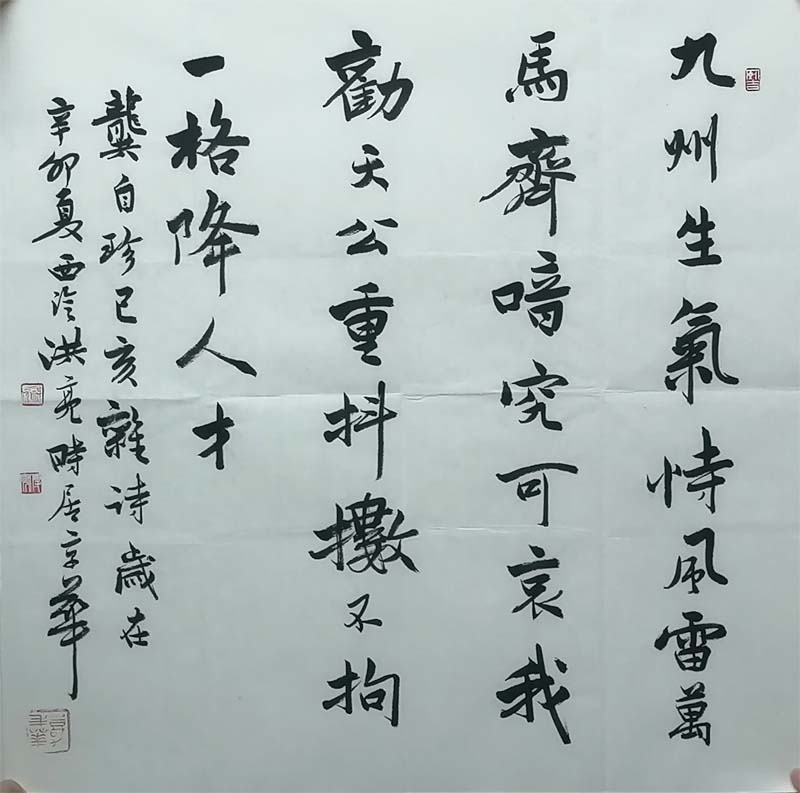 九州生氣恃風雷萬
馬齊喑究可哀我
勸天公重抖擻不拘
一格降人才
龔自珍已亥雜诗歲在
辛卯夏西泠洪亮時居京華